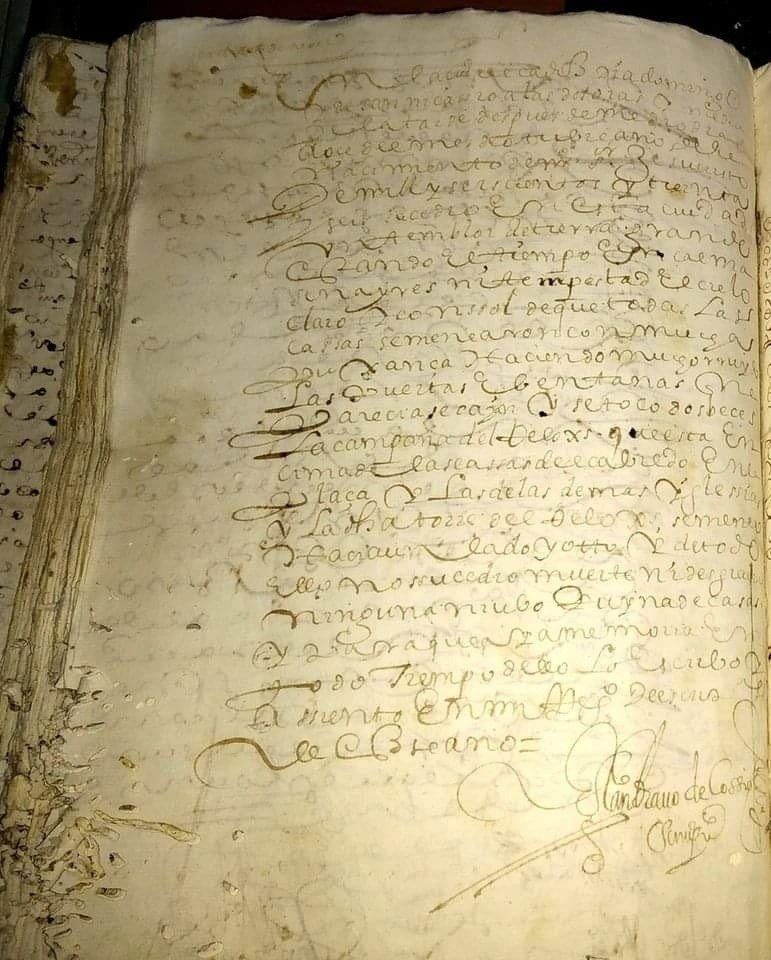 En la ciudad de dia domingo
de san a las dos oras y media
de la tarde despues de medio dia
que del mes de otubre año del
nacimiento de nro sr Jesucristo
de mill y seiscientos y treinta
y seis sucedio En esta ciudad
un temblor de tierra grande
Estando El tiempo En calma
sin ayres ni tempestad El cielo
claro con sol de que todas las
cassas semenearon con mucha
puxança Haciendo mucho rruydo
Las Puertas E bentanas que
Parecia se cayan y se toco dos beces
La campana del Relox que esta En
cima de las cassas de el cabildo En la
Plaça y Las de las demas yglessias
y La dha torre del Relox se meneo
Hacia un lado y otro y de todo
Ello no sucedio muerte ni desgracia
ninguna ni ubo Ruyna de casas
y Para que aya memoria En
todo Tiempo dello Lo Escribo
assiento En mi Rexo De escrituras
de Este año =
Juan Bravo de Cossio